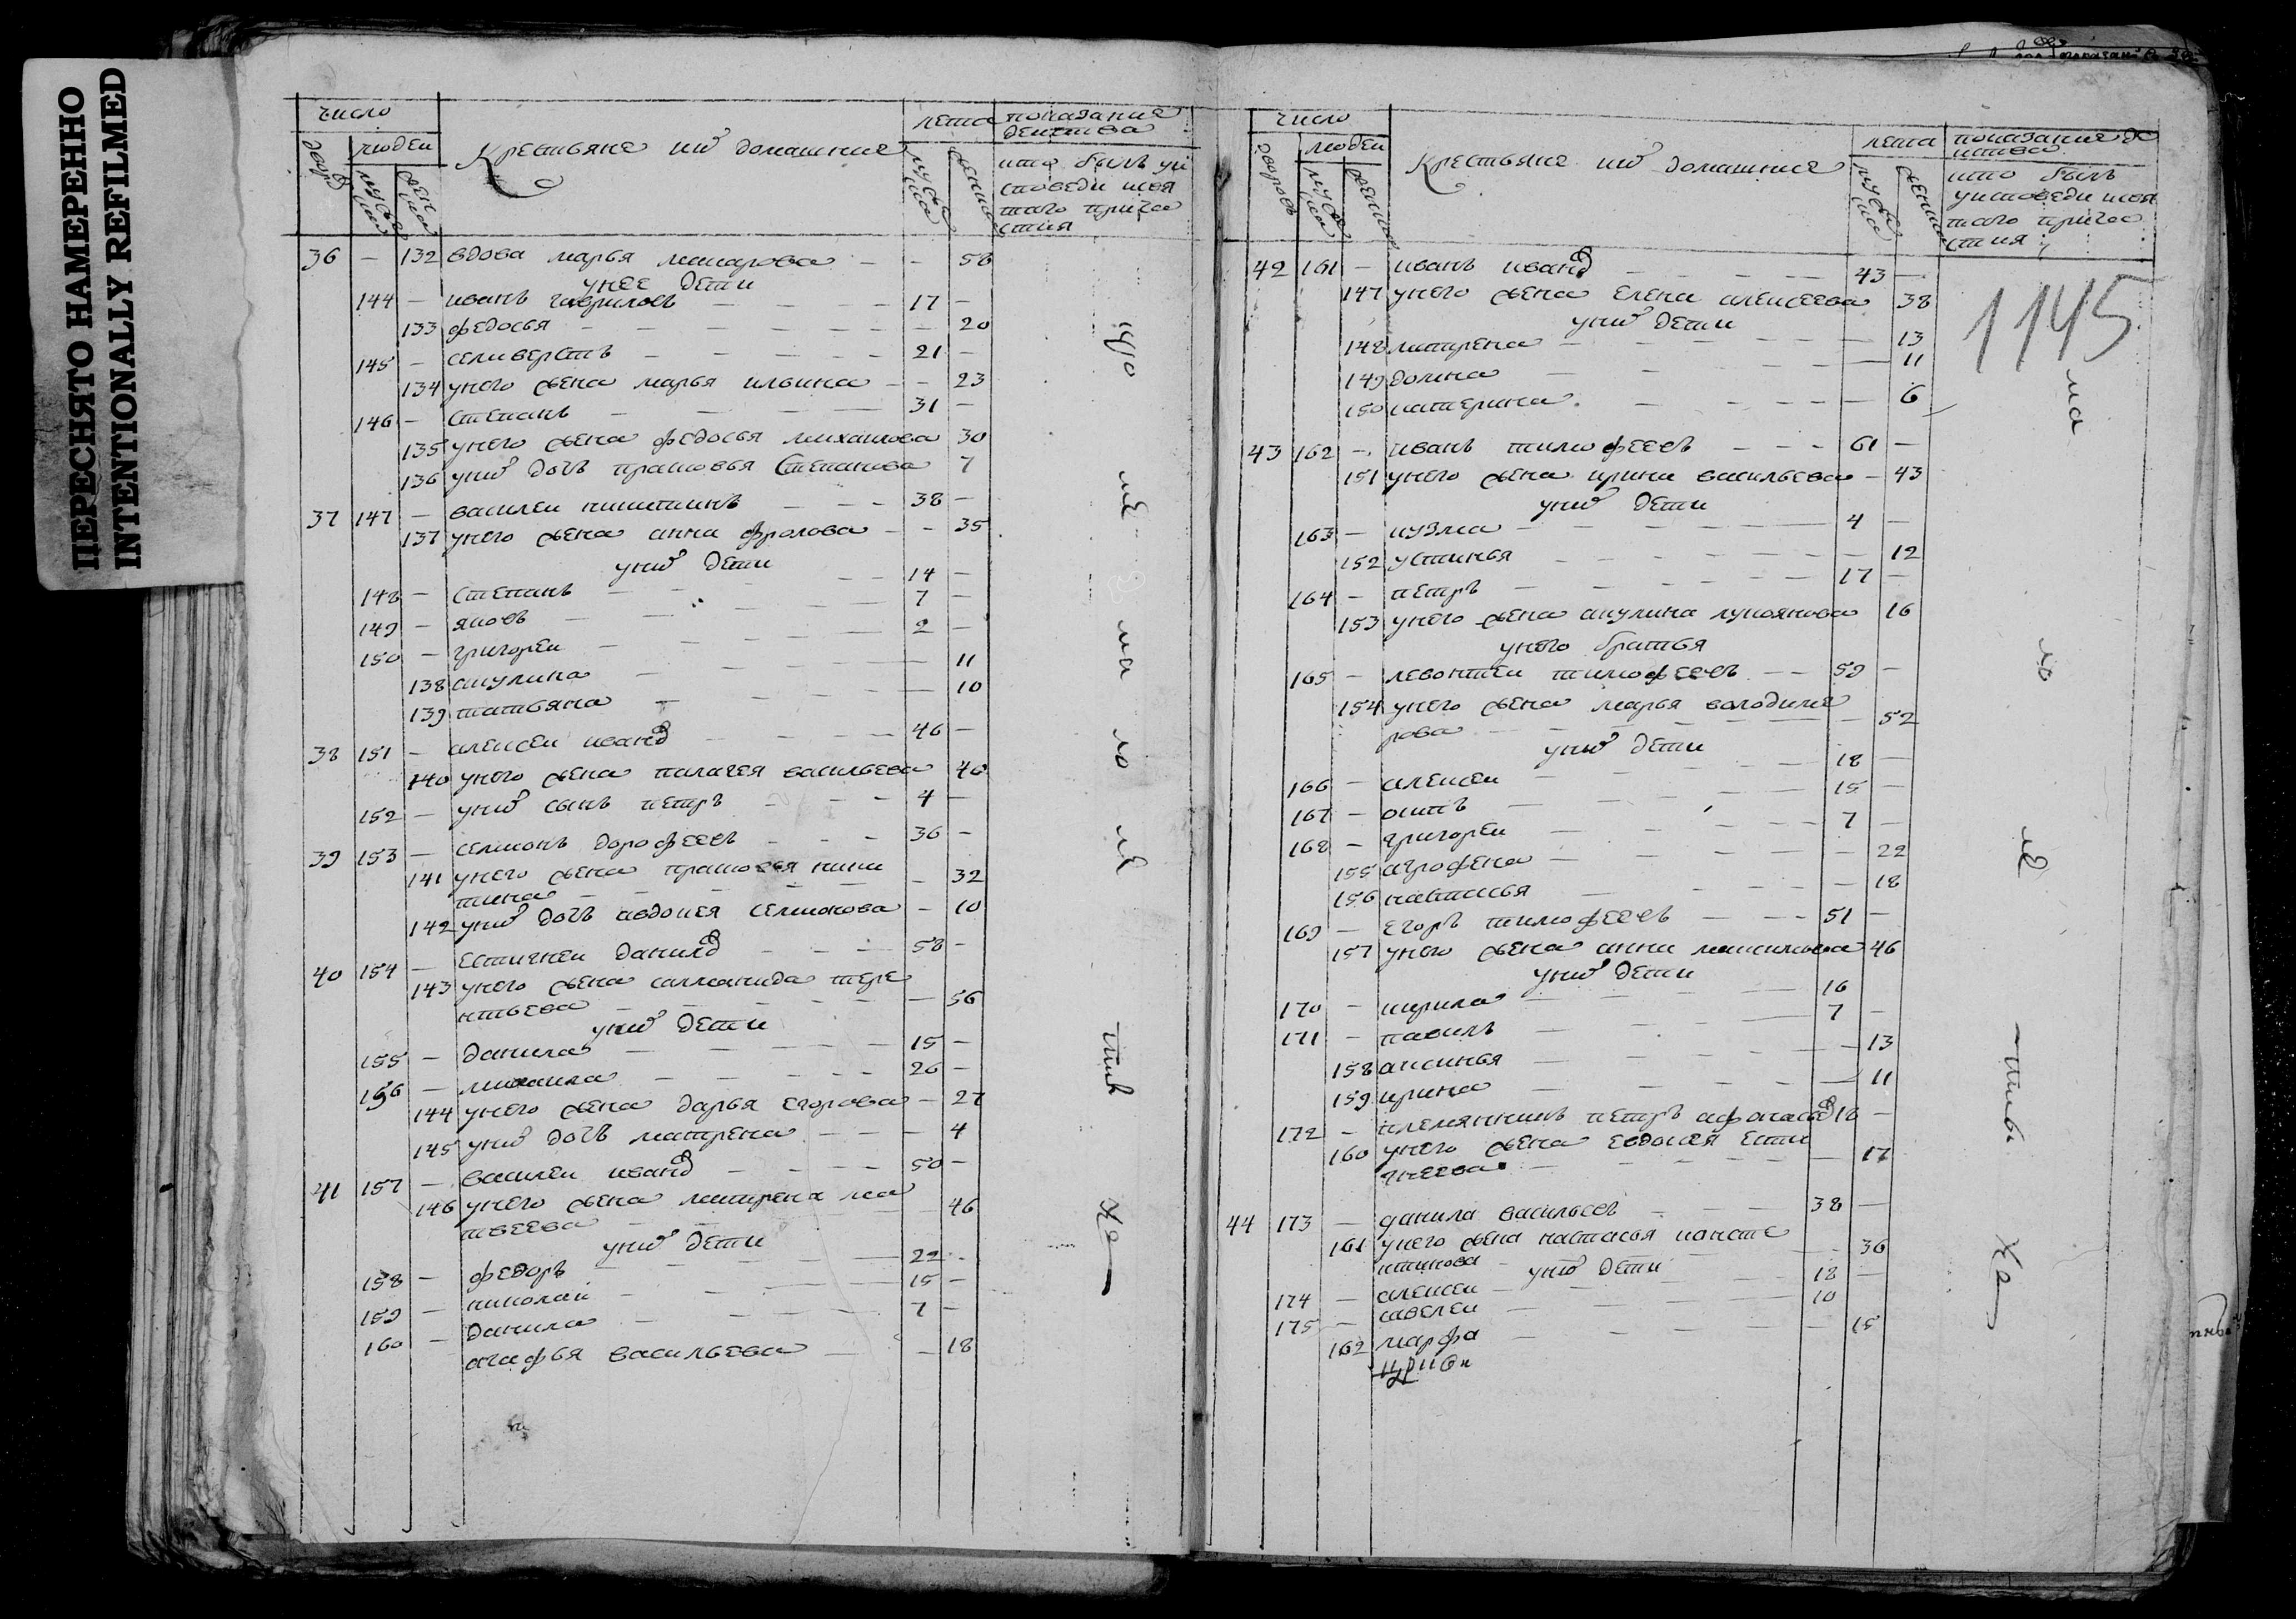 ПЕРЕСНЯТО НАМЕРЕННО
INTENTIONALLY REFILMED
число
людей
Крестьяне и их домашние
лета
показание действа
кто былъ у исповеди и святаго причастия
36 — 132 вдова марья макарова — — 58
у нее дети
144 — иванъ гавриловъ — 17 —
133 федосья — — 20
145 — селиверстъ — 21 —
134 у него жена марья ильина — — 23
146 — степанъ — 31 —
135 у него жена федосья михаилова 30
136 у них дочь прасковья степанова 7
37 147 — василеи никитинъ — 38 —
137 у него жена анна фролова — — 35
у них дети
148 — степанъ — 14 —
149 — яковъ — 7 —
150 — григореи — 2 —
138 акулина — — 11
139 татьяна — — 10
38 151 — алексеи иванов — 46 —
140 у него жена палагея васильева 40
152 — у них сынъ петръ — 4 —
39 153 — семионъ дорофеевъ — 36 —
141 у него жена прасковья ники
тина — — 32
142 у них дочь авдокея семионова — 10
40 154 — естигнеи данилов — 58 —
143 у него жена саламанида тере
нтьева — — 56
у них дети
155 — данила — 15 —
156 — михаила — 26 —
144 у него жена дарья егорова — 27
145 у них дочь матрена — — 4
41 157 — василеи иванов — 50 —
146 у него жена матрена ма
твеева — 46
у них дети
158 — федоръ — 22
159 — николаи — 15 —
160 — данила — 7 —
агафья васильева — — 18
число
людей
дворовъ
Крестьяне и их домашние
лета
показание действа
кто былъ у исповеди и святаго причастия
1145
42 161 — иванъ иванов — 43 —
147 у него жена елена алексеева 38
у них дети
148 матрена — — 13
149 домна — — 11
150 катерина — — 6
43 162 — иванъ тимофеевъ — 61 —
151 у него жена ирина васильева — 43
у них дети
163 — кузма — 4 —
152 устинья — — 12
164 — петръ — 17 —
153 у него жена акулина лукоянова 16
у него братья
165 — левонтеи тимофеевъ — 59 —
154 у него жена марья володиме
рова — — 52
у них дети
166 — алексеи — 18 —
167 — осипъ — 15 —
168 — григореи — 7 —
155 агрофена — — 22
156 настасья — — 18
169 — егоръ тимофеевъ — 51 —
157 у него жена анна максимова 46
у них дети
170 — кирила — 16
171 — павилъ — 7 —
158 аксинья — — 13
159 ирина — — 11
172 — племянникъ петръ афонасьев 18 —
160 у него жена евдокея ести
гнеева — — 17
44 173 — данила васильевъ — 38 —
161 у него жена настасья консте
нтинова — — 36
у них дети
174 — алексеи — 18 —
175 — савелеи — 10
162 марфа — — 15